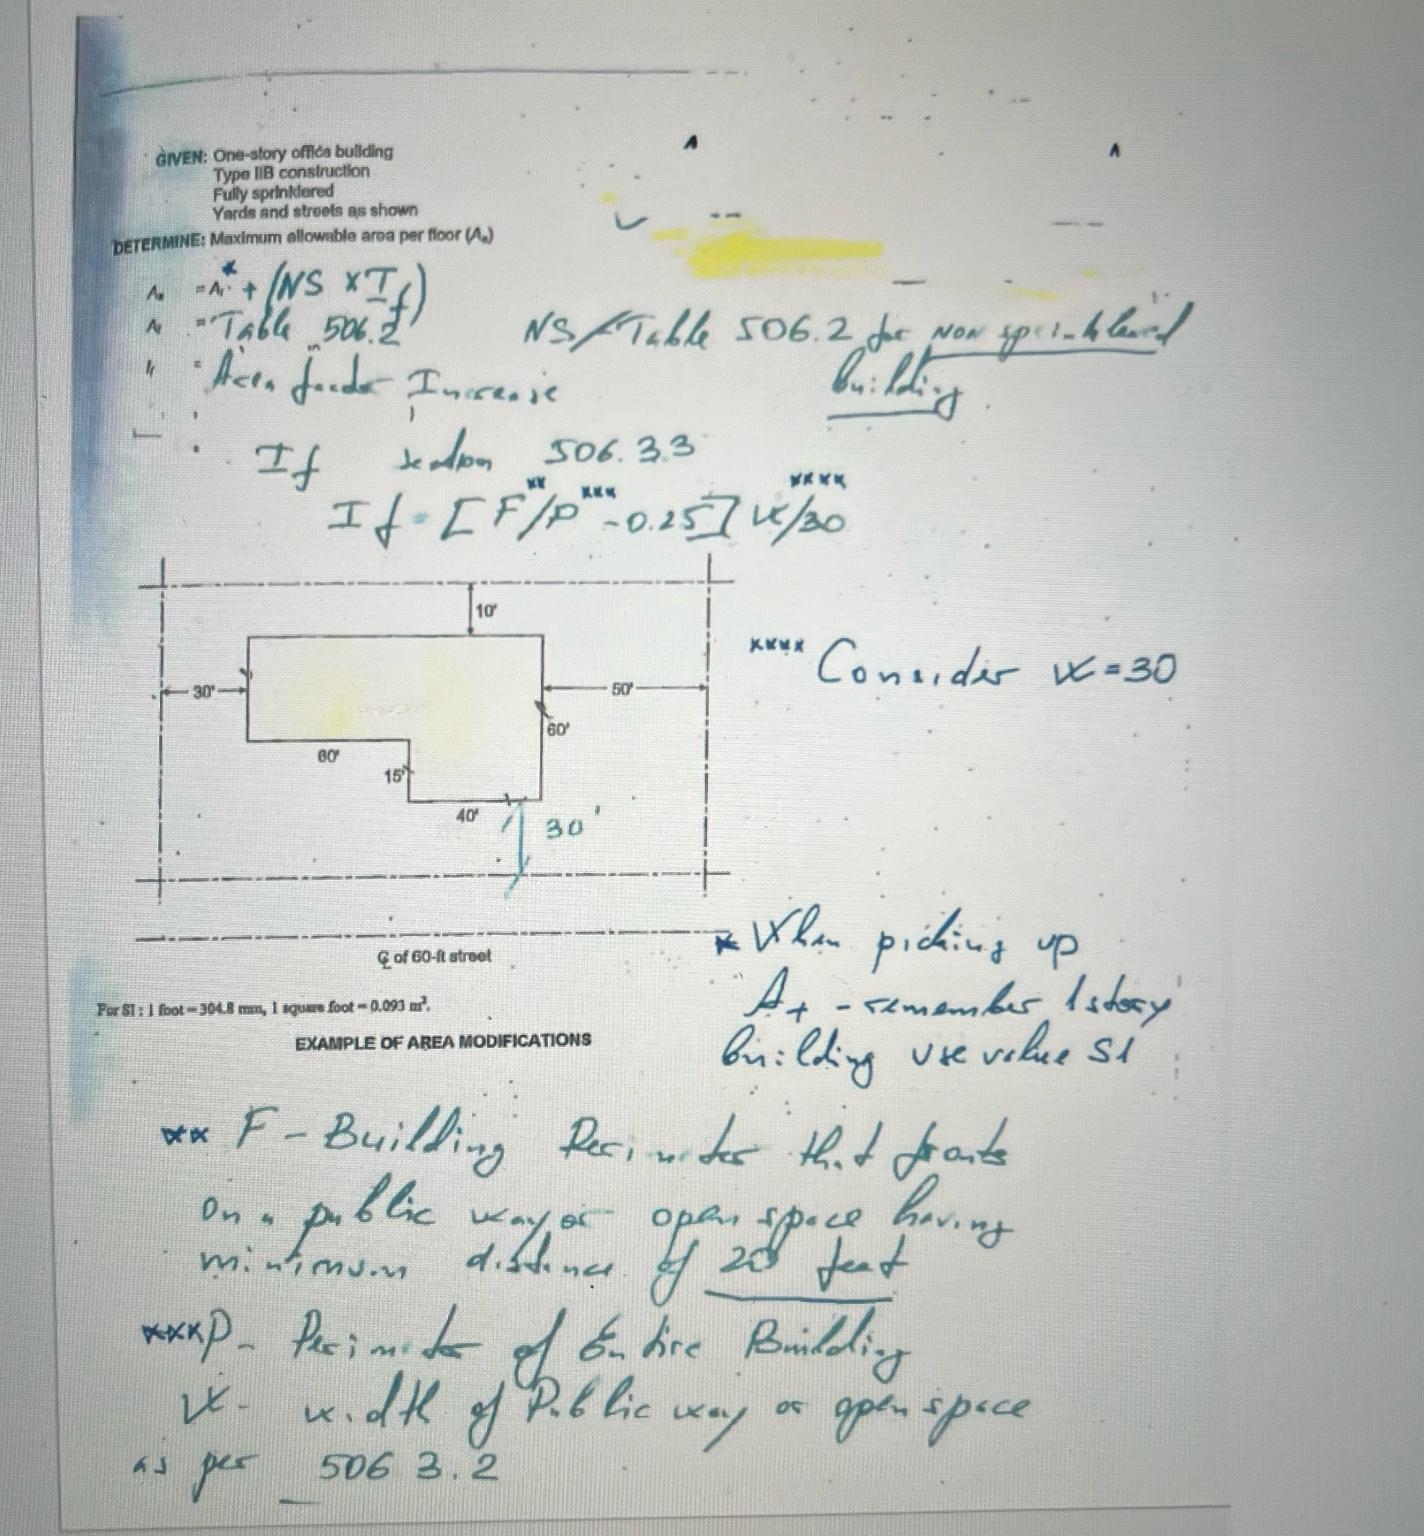 GIVEN: One-story office building
Type IIB construction
Fully sprinklered
Yards and streets as shown
DETERMINE: Maximum allowable area per floor (Aₐ)
Aₐ = Aₜ* + (NS x If)
Aₜ = Table 506.2 NS / Table 506.2 for NON sprinklered
Building.
If = Area Increase
If section 506.3.3
If = [F**/P*** - 0.25] W/30 ****
10'
30'
50'
60'
60'
15'
40'
30'
**** Consider W = 30
℄ of 60-ft street
For SI: 1 foot = 304.8 mm, 1 square foot = 0.093 m².
EXAMPLE OF AREA MODIFICATIONS
* When picking up
At - remember 1 story
building use value S1
** F - Building Perimeter that fronts
on a public way or open space having
minimum distance of 20 feet
*** P - Perimeter of Entire Building
W - width of Public way or open space
as per 506 3.2